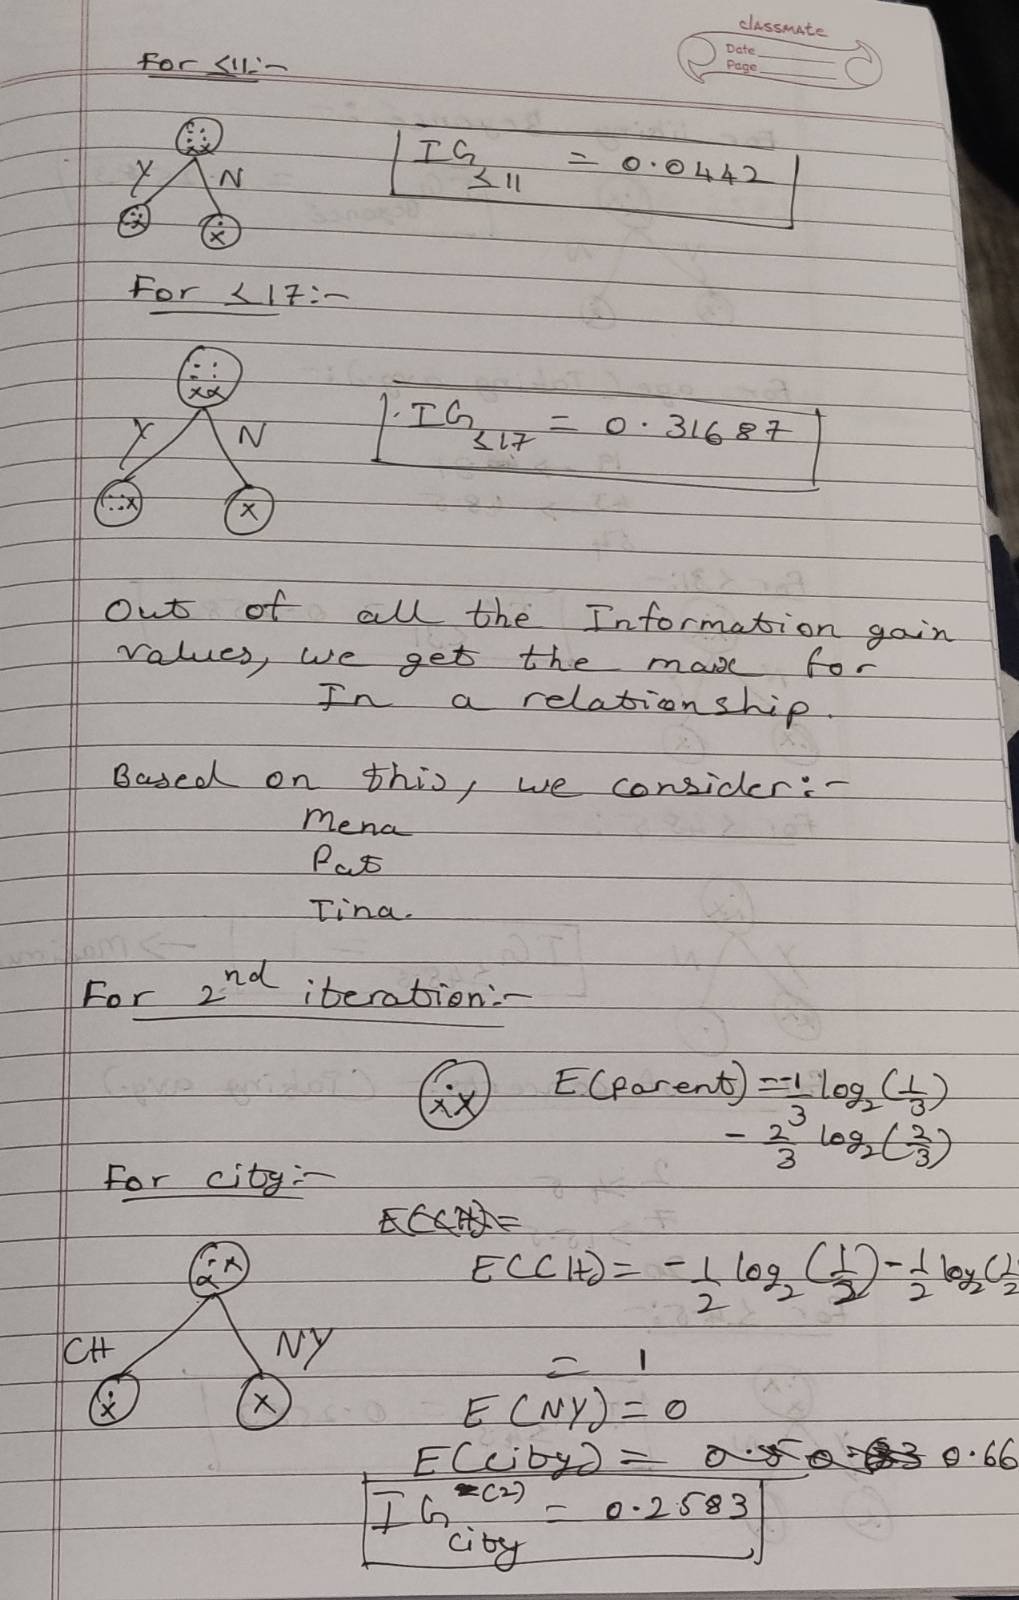 classmate
Date
Page
For ≤11:-
Y N
IG ≤11 = 0.0442
For ≤17:-
Y N
IG ≤17 = 0.31687
Out of all the Information gain
values, we get the max for
In a relationship.
Based on this, we consider:-
Mena
Pat
Tina.
For 2nd iteration:-
E(parent) = -1/3 log2(1/3)
- 2/3 log2(2/3)
For city:-
E(CH) =
E(CH) = -1/2 log2(1/2) - 1/2 log2(1/2
CH NY
= 1
E(NY) = 0
E(city) = 0.66
IG city (2) = 0.2583